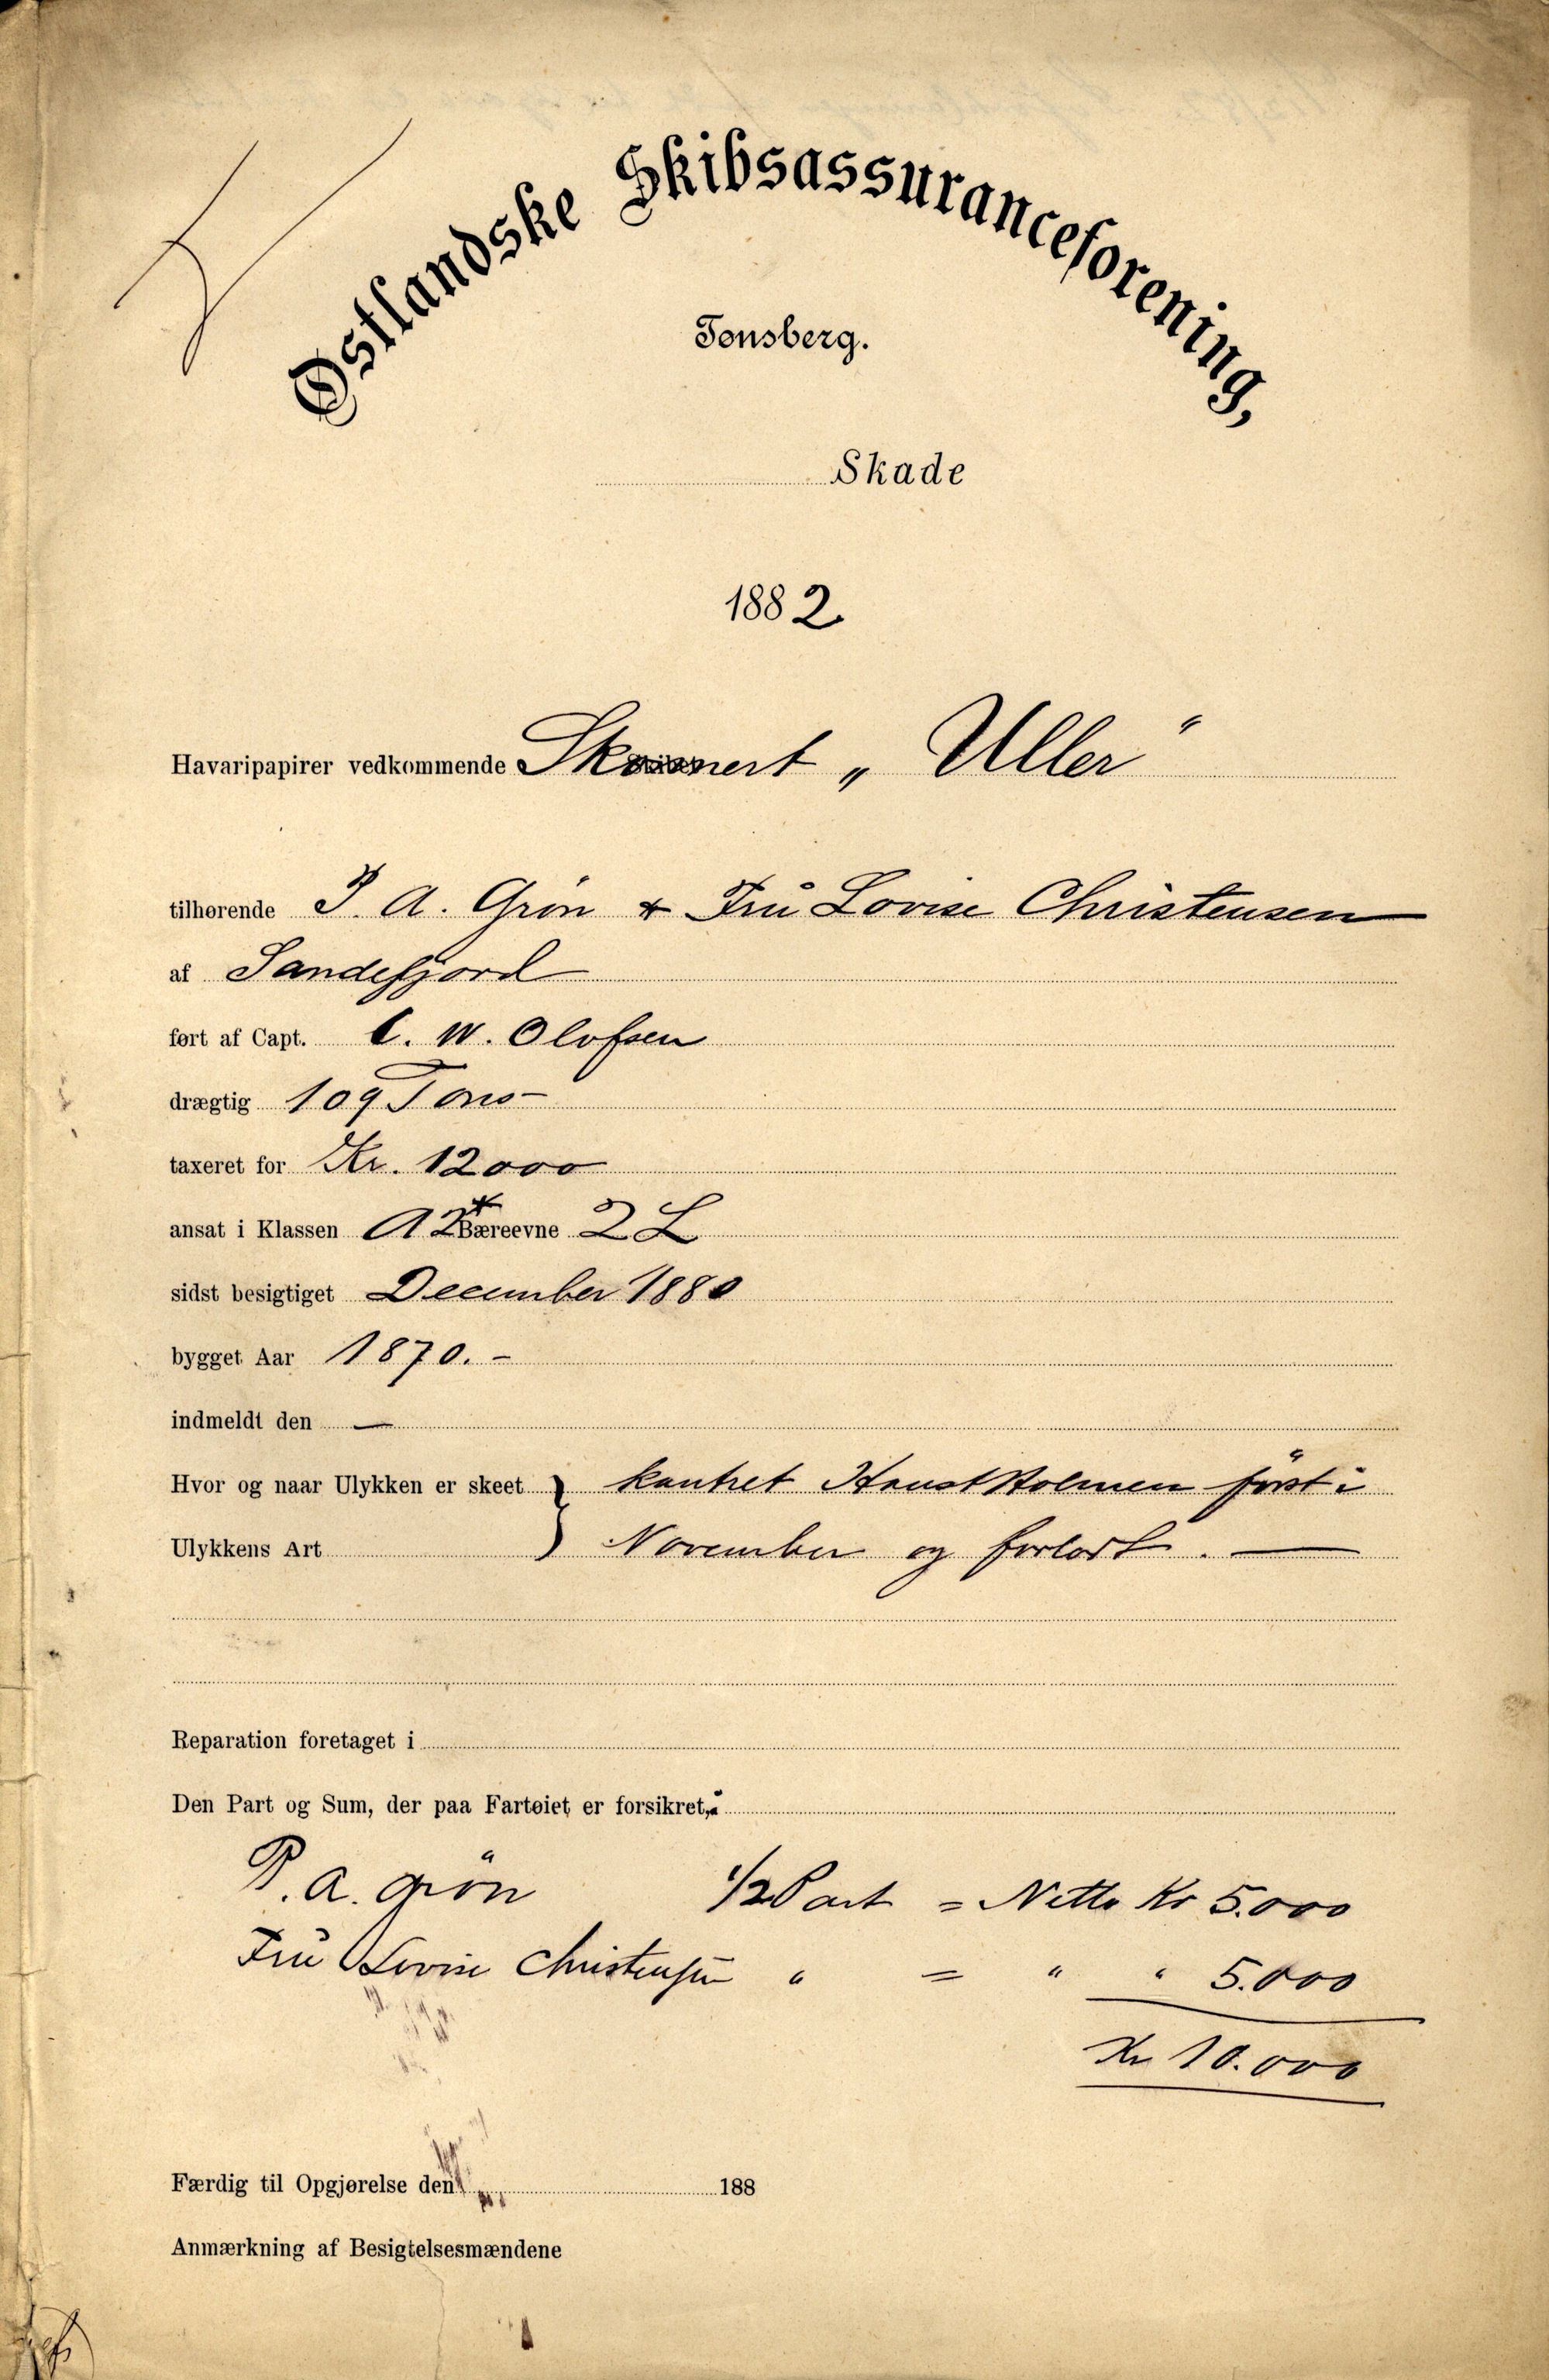 Østlandske Skibsassuranceforening,
Tønsberg.
Skade
1882.
Havaripapirer vedkommende Skonnert „Uller“
tilhørende P. A. Grön & Frú Lovise Christensen
af Sandefjord
ført af Capt. C. W. Olofsen
drægtig 109 Tons -
taxeret for Kr. 12000
ansat i Klassen A 2* Bæreevne 2 L
sidst besigtiget December 1880
bygget Aar 1870. -
indmeldt den —
Hvor og naar Ulykken er skeet } kantret Hanstholmen först i
Ulykkens Art November og forladt. —
Reparation foretaget i
Den Part og Sum, der paa Fartøiet er forsikret,
P. A. Grön 1/2 Part = Netto Kr 5.000
Frü Lovise Christensen " = " " 5.000
Kr 10.000
Færdig til Opgjørelse den 188
Anmærkning af Besigtelsesmændene